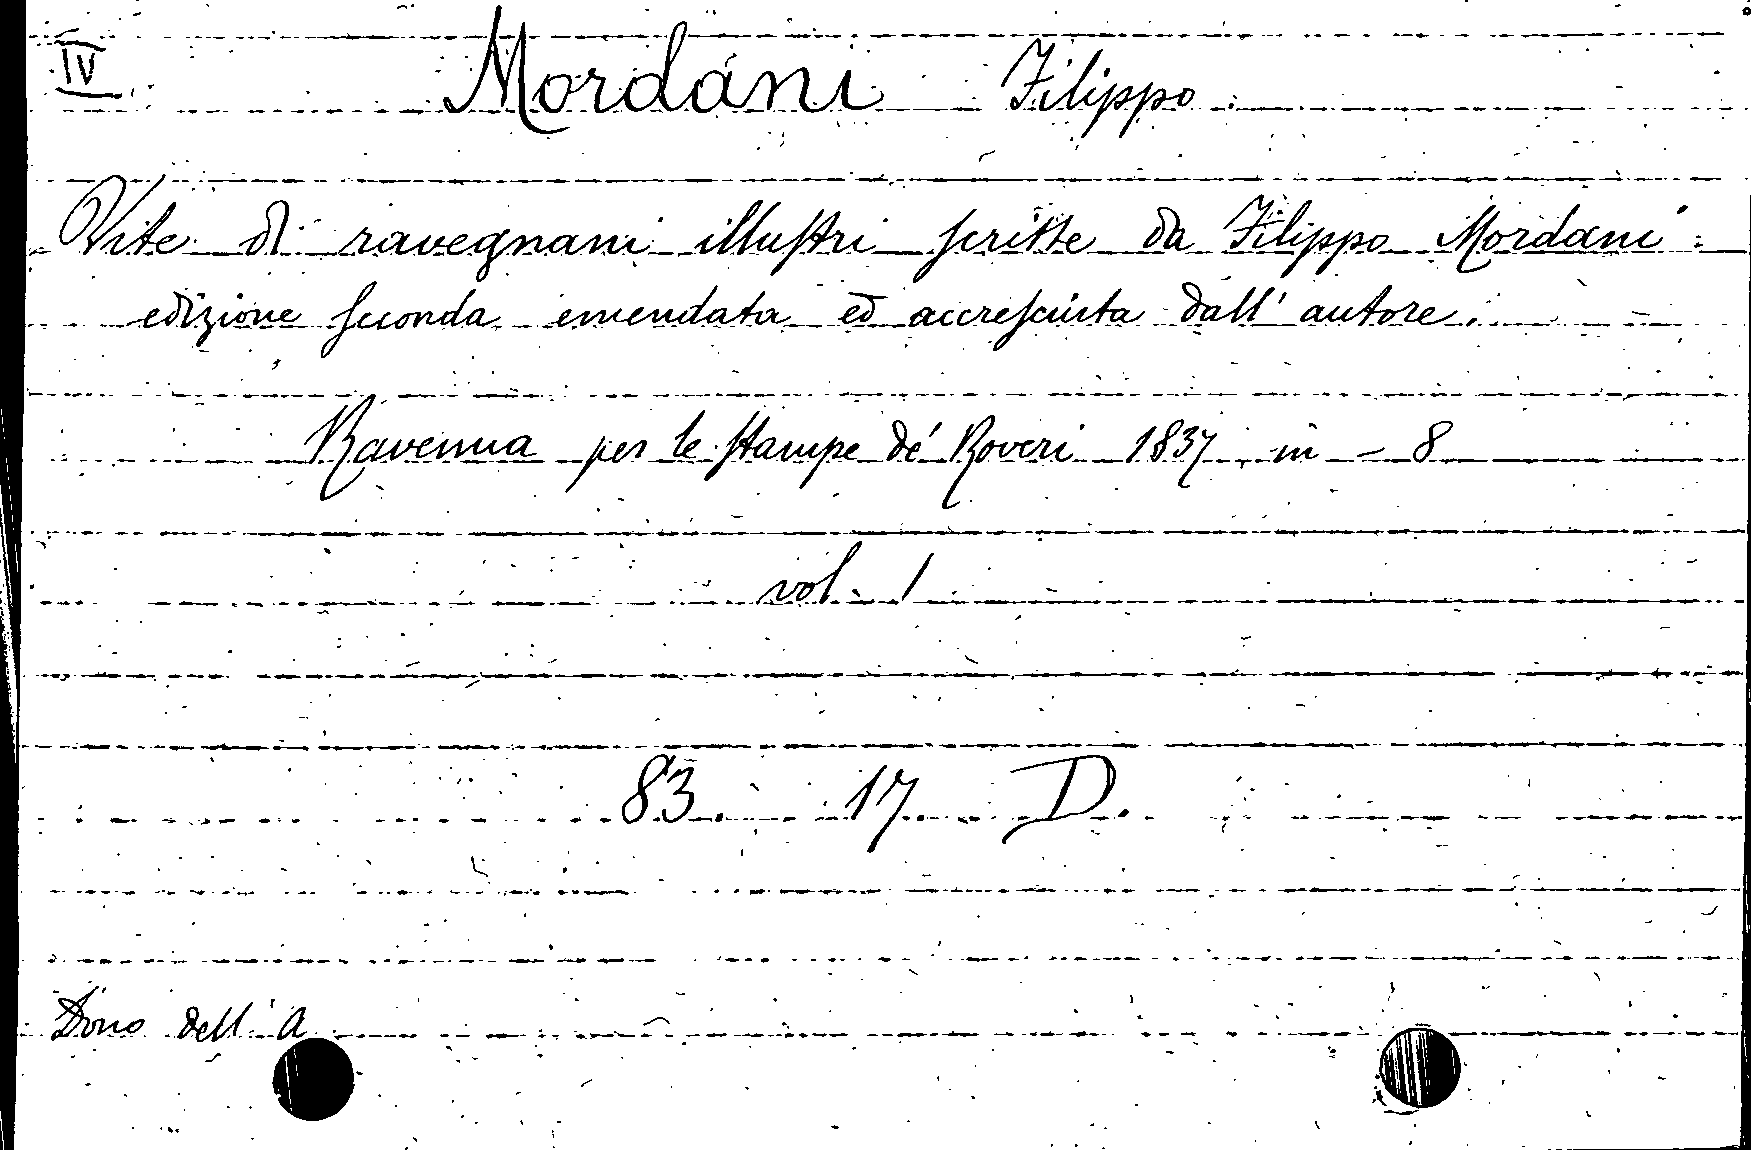 IV
Mordáni Filippo
Vite di ravegnani illuſtri ſcritte da Filippo Mordani:
edizione ſeconda emendata ed accreſciuta dall' autore.
Ravenna per le ſtampe de' Roveri 1837 in - 8
vol. 1
83. 17. D.
Dono dell' A